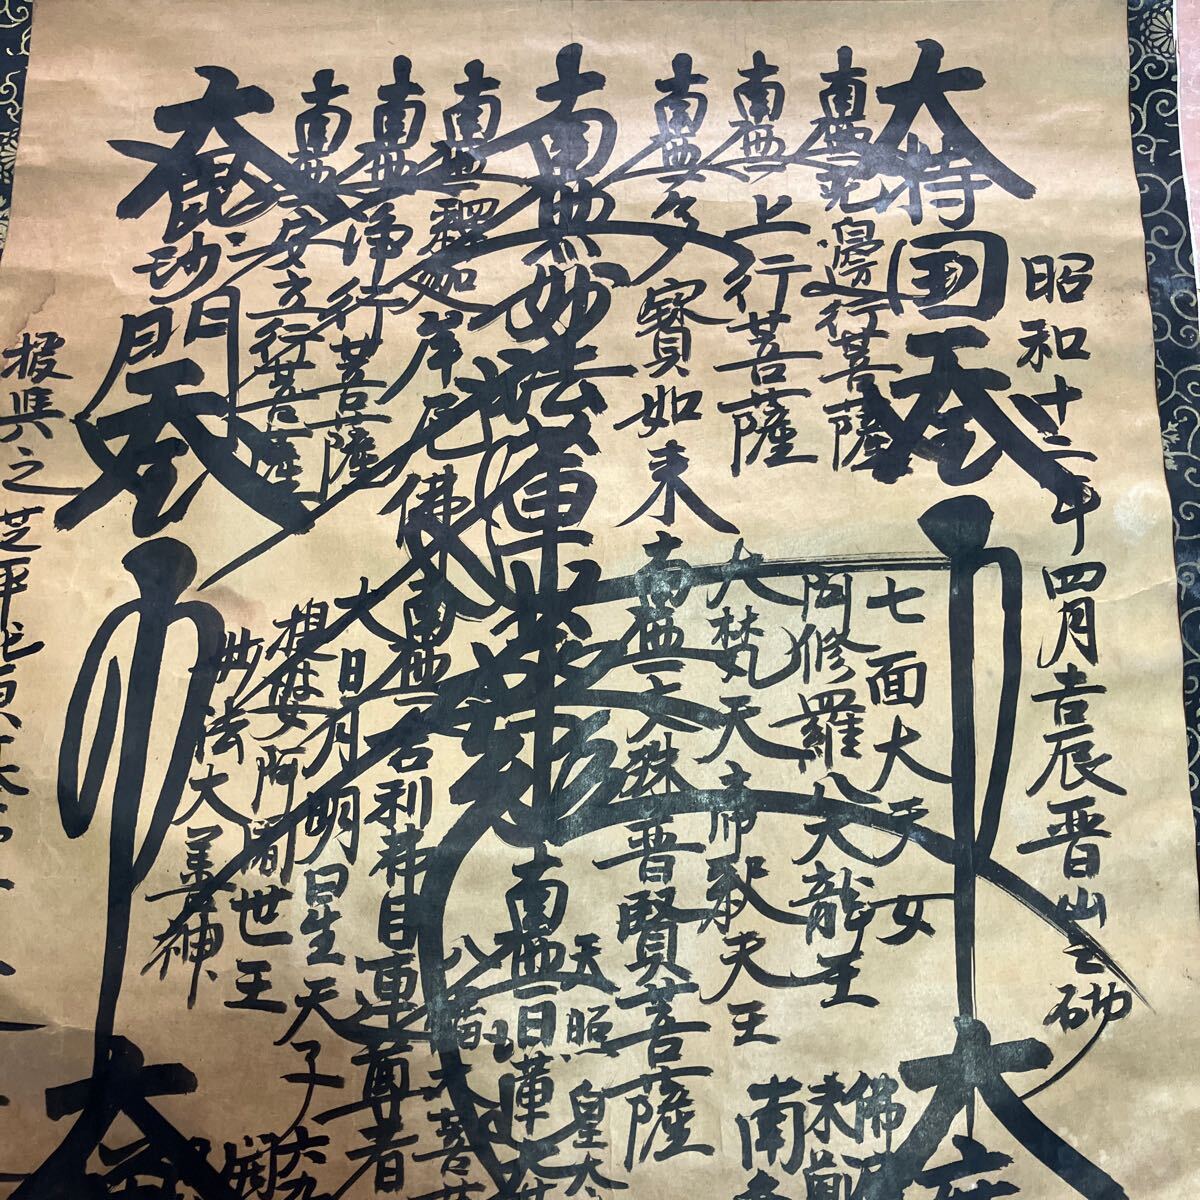 昭和十三年四月吉辰晋山之砌
大持国天王
南無無邊行菩薩
南無上行菩薩
南無多寶如来
南無妙法蓮華経
南無釋迦牟尼佛
南無浄行菩薩
南無安立行菩薩
大毘沙門天王
七面大天女
阿修羅 八大龍王
大梵天 帝釈天王
南無文殊普賢菩薩
南無舎利弗目連尊者
大日月明星天子
提婆 阿闍世王
妙法大善神
天照皇大
南無日蓮大
八幡大菩
大
佛
未
南無
大
授與之